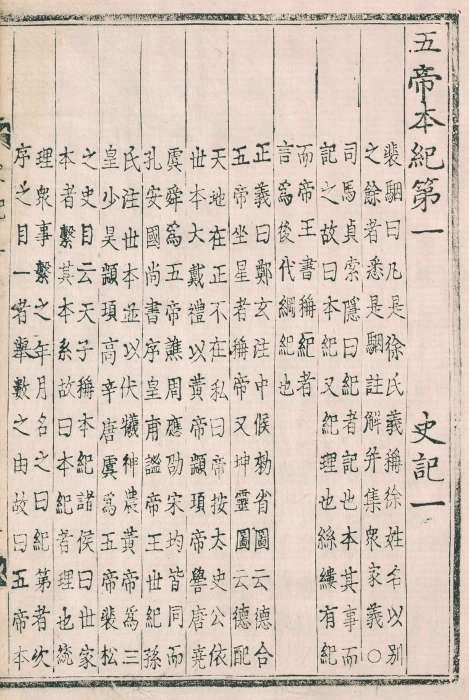 五帝本紀第一　史記一
裴駰曰凡是徐氏義稱徐姓名以別
之餘者悉是駰註解并集衆家義○
司馬貞索隱曰紀者記也本其事而
記之故曰本紀又紀理也絲縷有紀
而帝王書稱紀者
言爲後代綱紀也
正義曰鄭玄注中候勑省圖云德合
五帝坐星者稱帝又坤靈圖云德配
天地在正不在私曰帝按太史公依
世本大戴禮以黄帝顓頊帝嚳唐堯
虞舜爲五帝譙周應劭宋均皆同而
孔安國尚書序皇甫謐帝王世紀孫
氏注世本並以伏犧神農黄帝爲三
皇少昊顓頊高辛唐虞爲五帝裴松
之史目云天子稱本紀諸侯曰世家
本者繫其本系故曰本紀者理也統
理衆事繫之年月名之曰紀第者次
序之目一者舉數之由故曰五帝本